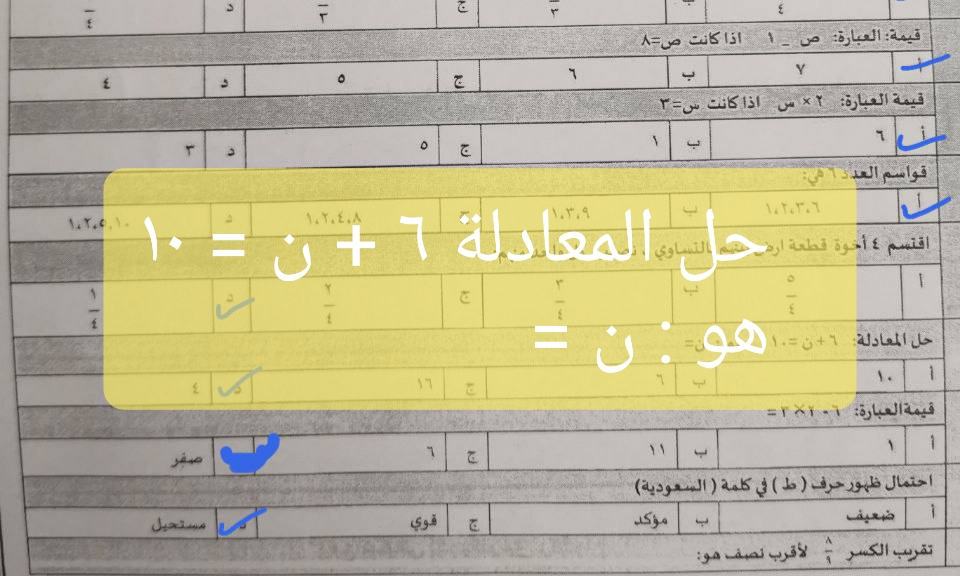 ٤ د ٣ ج ٣ ب ٤
قيمة: العبارة: ص _ ١ اذا كانت ص=٨
أ ٧ ب ٦ ج ٥ د ٤
قيمة العبارة: ٢ × س اذا كانت س=٣
أ ٦ ب ١ ج ٥ د ٣
قواسم العدد ٦ هي:
أ ١،٢،٣،٦ ب ١،٣،٩ ج ١،٢،٤،٨ د ١،٢،٥،١٠
اقتسم ٤ أخوة قطعة ارض بالتساوي
أ ٥/٤ ب ٣/٤ ج ٢/٤ د ١/٤
حل المعادلة ٦ + ن = ١٠
هو : ن =
حل المعادلة: ٦+ن=١٠ ن=
أ ١٠ ب ٦ ج ١٦ د ٤
قيمة العبارة: ٦-٢×٣=
أ ١ ب ١١ ج ٦ صفر
احتمال ظهور حرف ( ط ) في كلمة ( السعودية)
أ ضعيف ب مؤكد ج قوي د مستحيل
تقريب الكسر ٨/٩ لأقرب نصف هو: